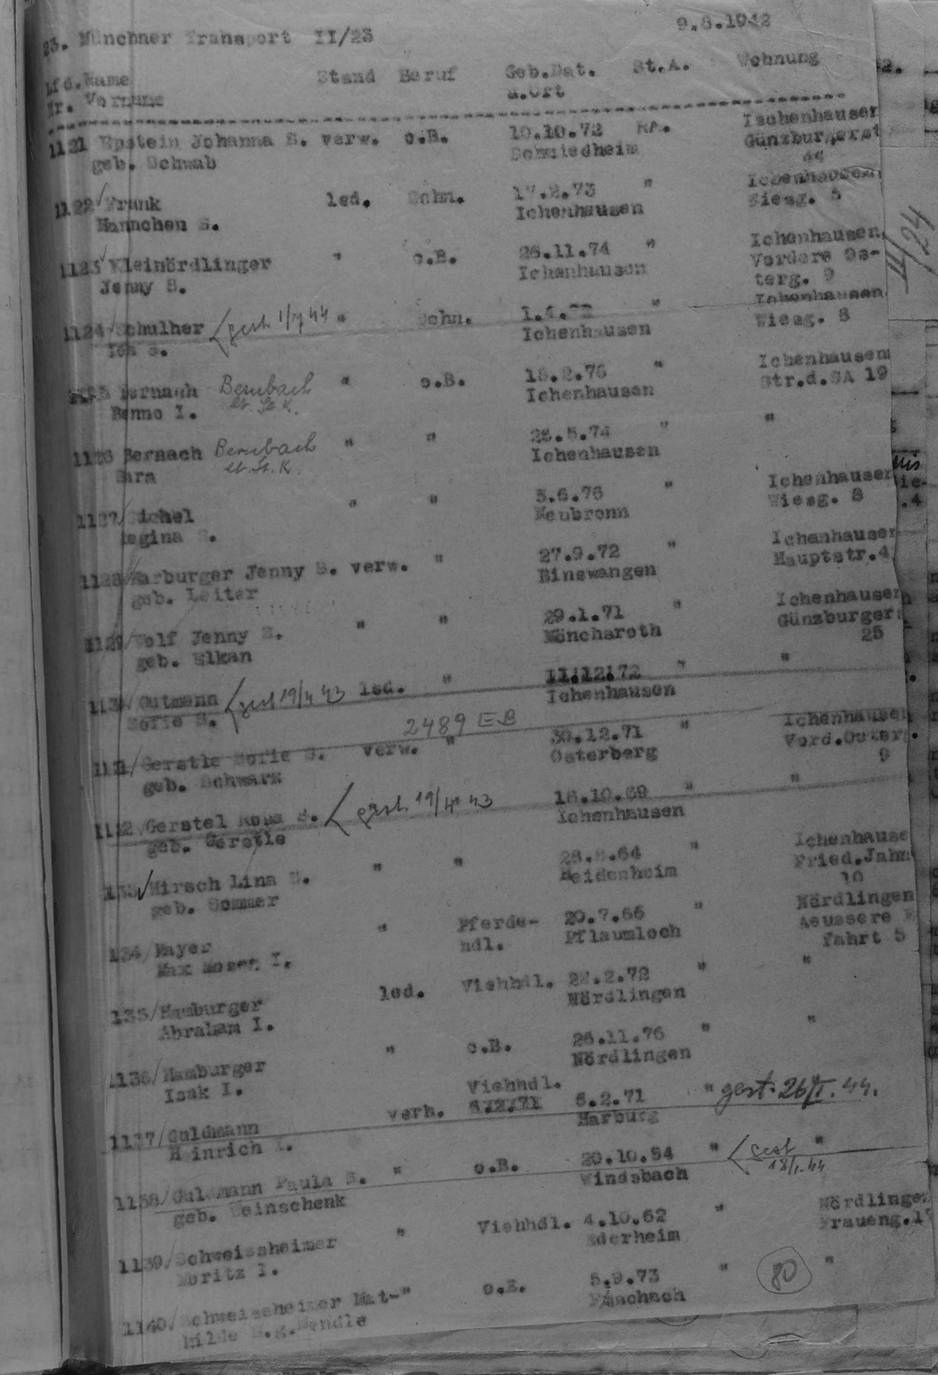 23. Münchner Transport II/23 9.8.1942
Lfd. Name Stand Beruf Geb.Dat. St.A. Wohnung
Nr. Vorname u.Ort
1121 Epstein Johanna S. verw. o.B. 10.10.72 RA. Ischenhausen
geb. Schwab Schmiedheim Günzburgerst
44
1122/ Frank led. Schn. 17.2.73 " Ichenhausen
Hannchen S. Ichenhausen Wiesg. 5
1123/ Kleinördlinger " o.B. 26.11.74 " Ichenhausen
Jenny S. Ichenhausen Vordere Os-
terg. 9
1124/ Schulher gest. 1/IV 44 " Schn. " Ichenhausen
S. Ichenhausen Wiesg. 8
Bernach Bernbach " o.B. 18.2.76 " Ichenhausen
Benno I. lt. St. K. Ichenhausen Str.d.SA 19
1126 Bernach Bernbach " " 28.5.74 " "
Sara lt. St. K. Ichenhausen
1127/ Michel " " 3.6.76 " Ichenhausen
Regina S. Neubronn Wiesg. 8
1128/ Harburger Jenny S. verw. " 27.9.72 " Ichenhausen
geb. Leiter Binswangen Hauptstr.4
1129/ Wolf Jenny S. " " 29.1.71 " Ichenhausen
geb. Elkan Mönchsroth Günzburger
25
113 / Gutmann gest 19/4 43 led. " 11.12.72 " "
Sofie S. Ichenhausen
2489 EB
1131/ Gerstle Sofie S. verw. " 30.12.71 " Ichenhausen
geb. Schwarz Osterberg Vord.Osterg.
9
1132 Gerstel Rosa S. gest. 19/ 43 18.10.69 " "
geb. Gerstle Ichenhausen
133 Hirsch Lina S. " " 28.8.64 " Ichenhause
geb. Sommer Heidenheim Fried.Jahn
10
134/ Mayer " Pferde- 20.7.66 " Nördlingen
Max Moses I. hdl. Pflaumloch Aeussere
fahrt 5
135/ Hamburger led. Viehhdl. 22.2.72 " "
Abraham I. Nördlingen
1136/ Hamburger " o.B. 26.11.76 " "
Isak I. Nördlingen
Viehhdl.
1137/ Guldmann verh. 6.2.71 6.2.71 " gest. 26/I. 44.
Heinrich I. Harburg
1138/ Guldmann Paula S. " o.B. 20.10.84 " gest "
geb. Weinschenk Windsbach 18/1.44
1139/ Schweissheimer " Viehhdl. 4.10.62 " Nördlingen
Moritz I. Ederheim Fraueng.1
1140/ Schweisheimer Mat-" o.B. 5.9.73 " 80 "
hilde S.g.Mendle
II/24